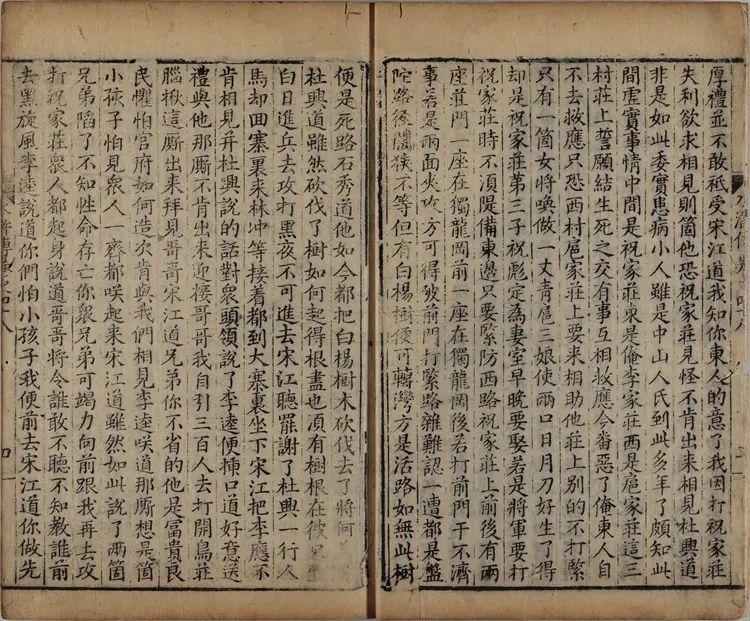 厚禮並不敢祗受宋江道我知你東人的意了我因打祝家庄
失利欲求相見則箇他恐祝家庄見怪不肯出來相見杜興道
非是如此委實患病小人雖是中山人氏到此多年了頗知此
間虛實事情中間是祝家庄東是俺李家庄西是扈家庄這三
村庄上誓願結生死之交有事互相救應今番惡了俺東人自
不去救應只恐西村扈家庄上要來相助他庄上別的不打緊
只有一箇女將喚做一丈青扈三娘使兩口日月刀好生了得
却是祝家庄第三子祝彪定為妻室早晚要娶若是將軍要打
祝家庄時不須隄備東邊只要緊防西路祝家庄上前後有兩
座庄門一座在獨龍岡前一座在獨龍岡後若打前門干不濟
事若是兩面夾攻方可得破前門打緊路雜難認一遭都是盤
陀路徑闊狹不等但有白楊樹便可轉灣方是活路如無此樹
便是死路石秀道他如今都把白楊樹木砍伐去了將何
杜興道雖然砍伐了樹如何起得根盡也須有樹根在彼只
白日進兵去攻打黑夜不可進去宋江聽罷謝了杜興一行人
馬却回寨裏來林冲等接着都到大寨裏坐下宋江把李應不
肯相見并杜興說的話對衆頭領說了李逵便揷口道好意送
禮與他那厮不肯出來迎接哥哥我自引三百人去打開鳥庄
腦揪這厮出來拜見哥哥宋江道兄弟你不省的他是冨貴良
民懼怕官府如何造次肯與我們相見李逵笑道那厮想是箇
小孩子怕見衆人一齊都笑起來宋江道雖然如此說了兩箇
兄弟陷了不知性命存亡你衆兄弟可竭力向前跟我再去攻
打祝家庄衆人都起身說道哥哥將令誰敢不聽不知教誰前
去黑旋風李逵說道你們怕小孩子我便前去宋江道你做先